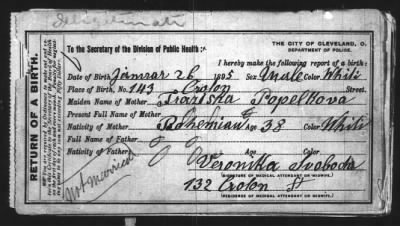 Illegitimate
THE CITY OF CLEVELAND, O.
DEPARTMENT OF POLICE.
To the Secretary of the Division of Public Health:
I hereby make the following report of a birth:
Date of Birth Januar 26 1895 Sex Male Color White
Place of Birth, No. 143 Croton Street.
Maiden Name of Mother Franziska Popelkova
Present Full Name of Mother
Nativity of Mother Bohemian Age 38 Color White
Full Name of Father
Nativity of Father Age Color
Not married
Veronika Svoboda
(SIGNATURE OF MEDICAL ATTENDANT OR MIDWIFE.)
132 Croton St
(RESIDENCE OF MEDICAL ATTENDANT OR MIDWIFE.)
RETURN OF A BIRTH.